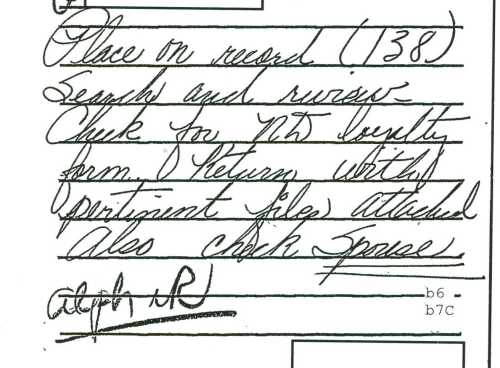 Place on record (138)
Search and review
Check for ND loyalty
form. Return with
pertinent files attached
Also check Spouse.
NR
b6
b7C